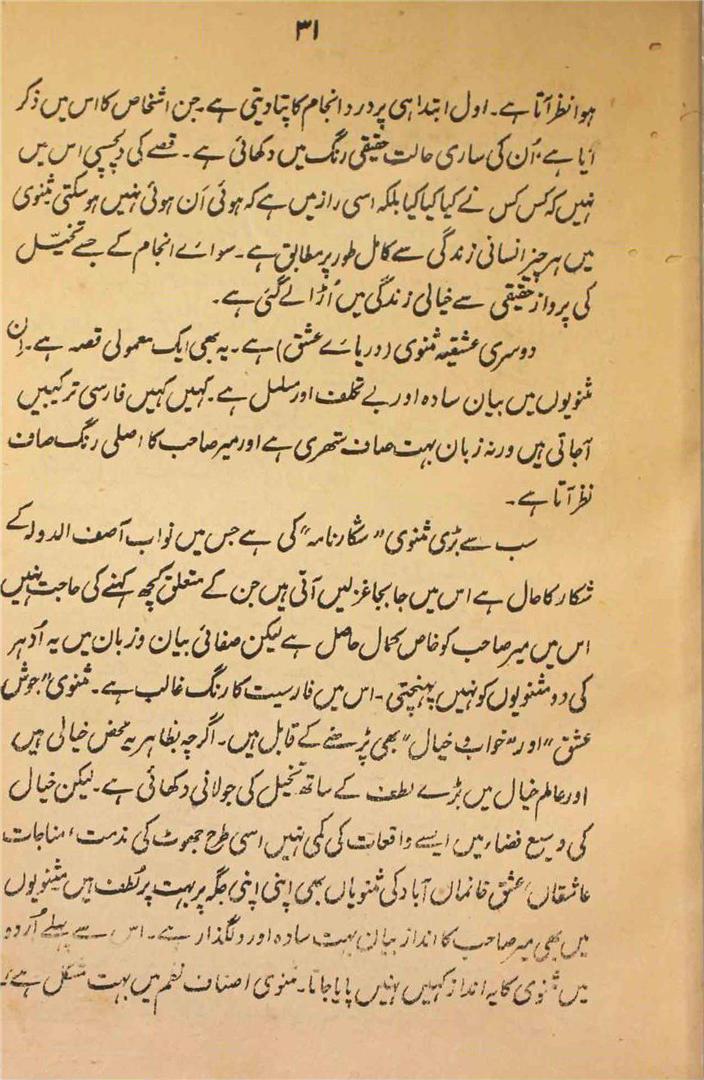 ۳۱
ہوا نظر آتا ہے۔ اول ابتدا ہی پر درد انجام کا پتا دیتی ہے۔ جن اشخاص کا اس میں ذکر
آیا ہے، اُن کی ساری حالت حقیقی رنگ میں دکھائی ہے۔ قصے کی دلچسپی اس میں
نہیں کہ کس کس نے کیا کیا کیا بلکہ اسی راز میں ہے کہ ہوئی اَن ہوئی نہیں ہو سکتی مثنوی
میں ہر چیز انسانی زندگی سے کامل طور پر مطابق ہے۔ سواے انجام کے جسے تخیّل
کی پرواز حقیقی سے خیالی زندگی میں اُڑا لے گئی ہے۔
دوسری عشقیہ مثنوی (دریاے عشق) ہے۔ یہ بھی ایک معمولی قصہ ہے۔ اِن
مثنویوں میں بیان سادہ اور بے تکلف اور مسلسل ہے۔ کہیں کہیں فارسی ترکیبیں
آجاتی ہیں ورنہ زبان بہت صاف ستھری ہے اور میر صاحب کا اصلی رنگ صاف
نظر آتا ہے۔
سب سے بڑی مثنوی "شکار نامہ" کی ہے جس میں نواب آصف الدولہ کے
شکار کا حال ہے اس میں جابجا غزلیں آتی ہیں جن کے متعلق کچھ کہنے کی حاجت نہیں
اس میں میر صاحب کو خاص کمال حاصل ہے لیکن صفائی بیان و زبان میں یہ اُدہر
کی دو مثنویوں کو نہیں پہنچتی۔ اس میں فارسیت کا رنگ غالب ہے۔ مثنوی "جوش
عشق" اور "خواب و خیال" بھی پڑھنے کے قابل ہیں۔ اگرچہ بظاہر یہ محض خیالی ہیں
اور عالم خیال میں بڑے لطف کے ساتھ تخیل کی جولانی دکھائی ہے۔ لیکن خیال
کی وسیع فضاء میں ایسے واقعات کی کمی نہیں اسی طرح جھوٹ کی مذمت، مناجات
عاشقاں، عشق خانماں آباد کی مثنویاں بھی اپنی اپنی جگہ پر بہت پر لُطف ہیں مثنویوں
میں بھی میر صاحب کا انداز بیان بہت سادہ اور دلگداز ہے۔ اس سے پہلے اُردو
میں مثنوی کا یہ انداز کہیں نہیں پایا جاتا۔ مثنوی اصناف نظم میں بہت مشکل ہے،